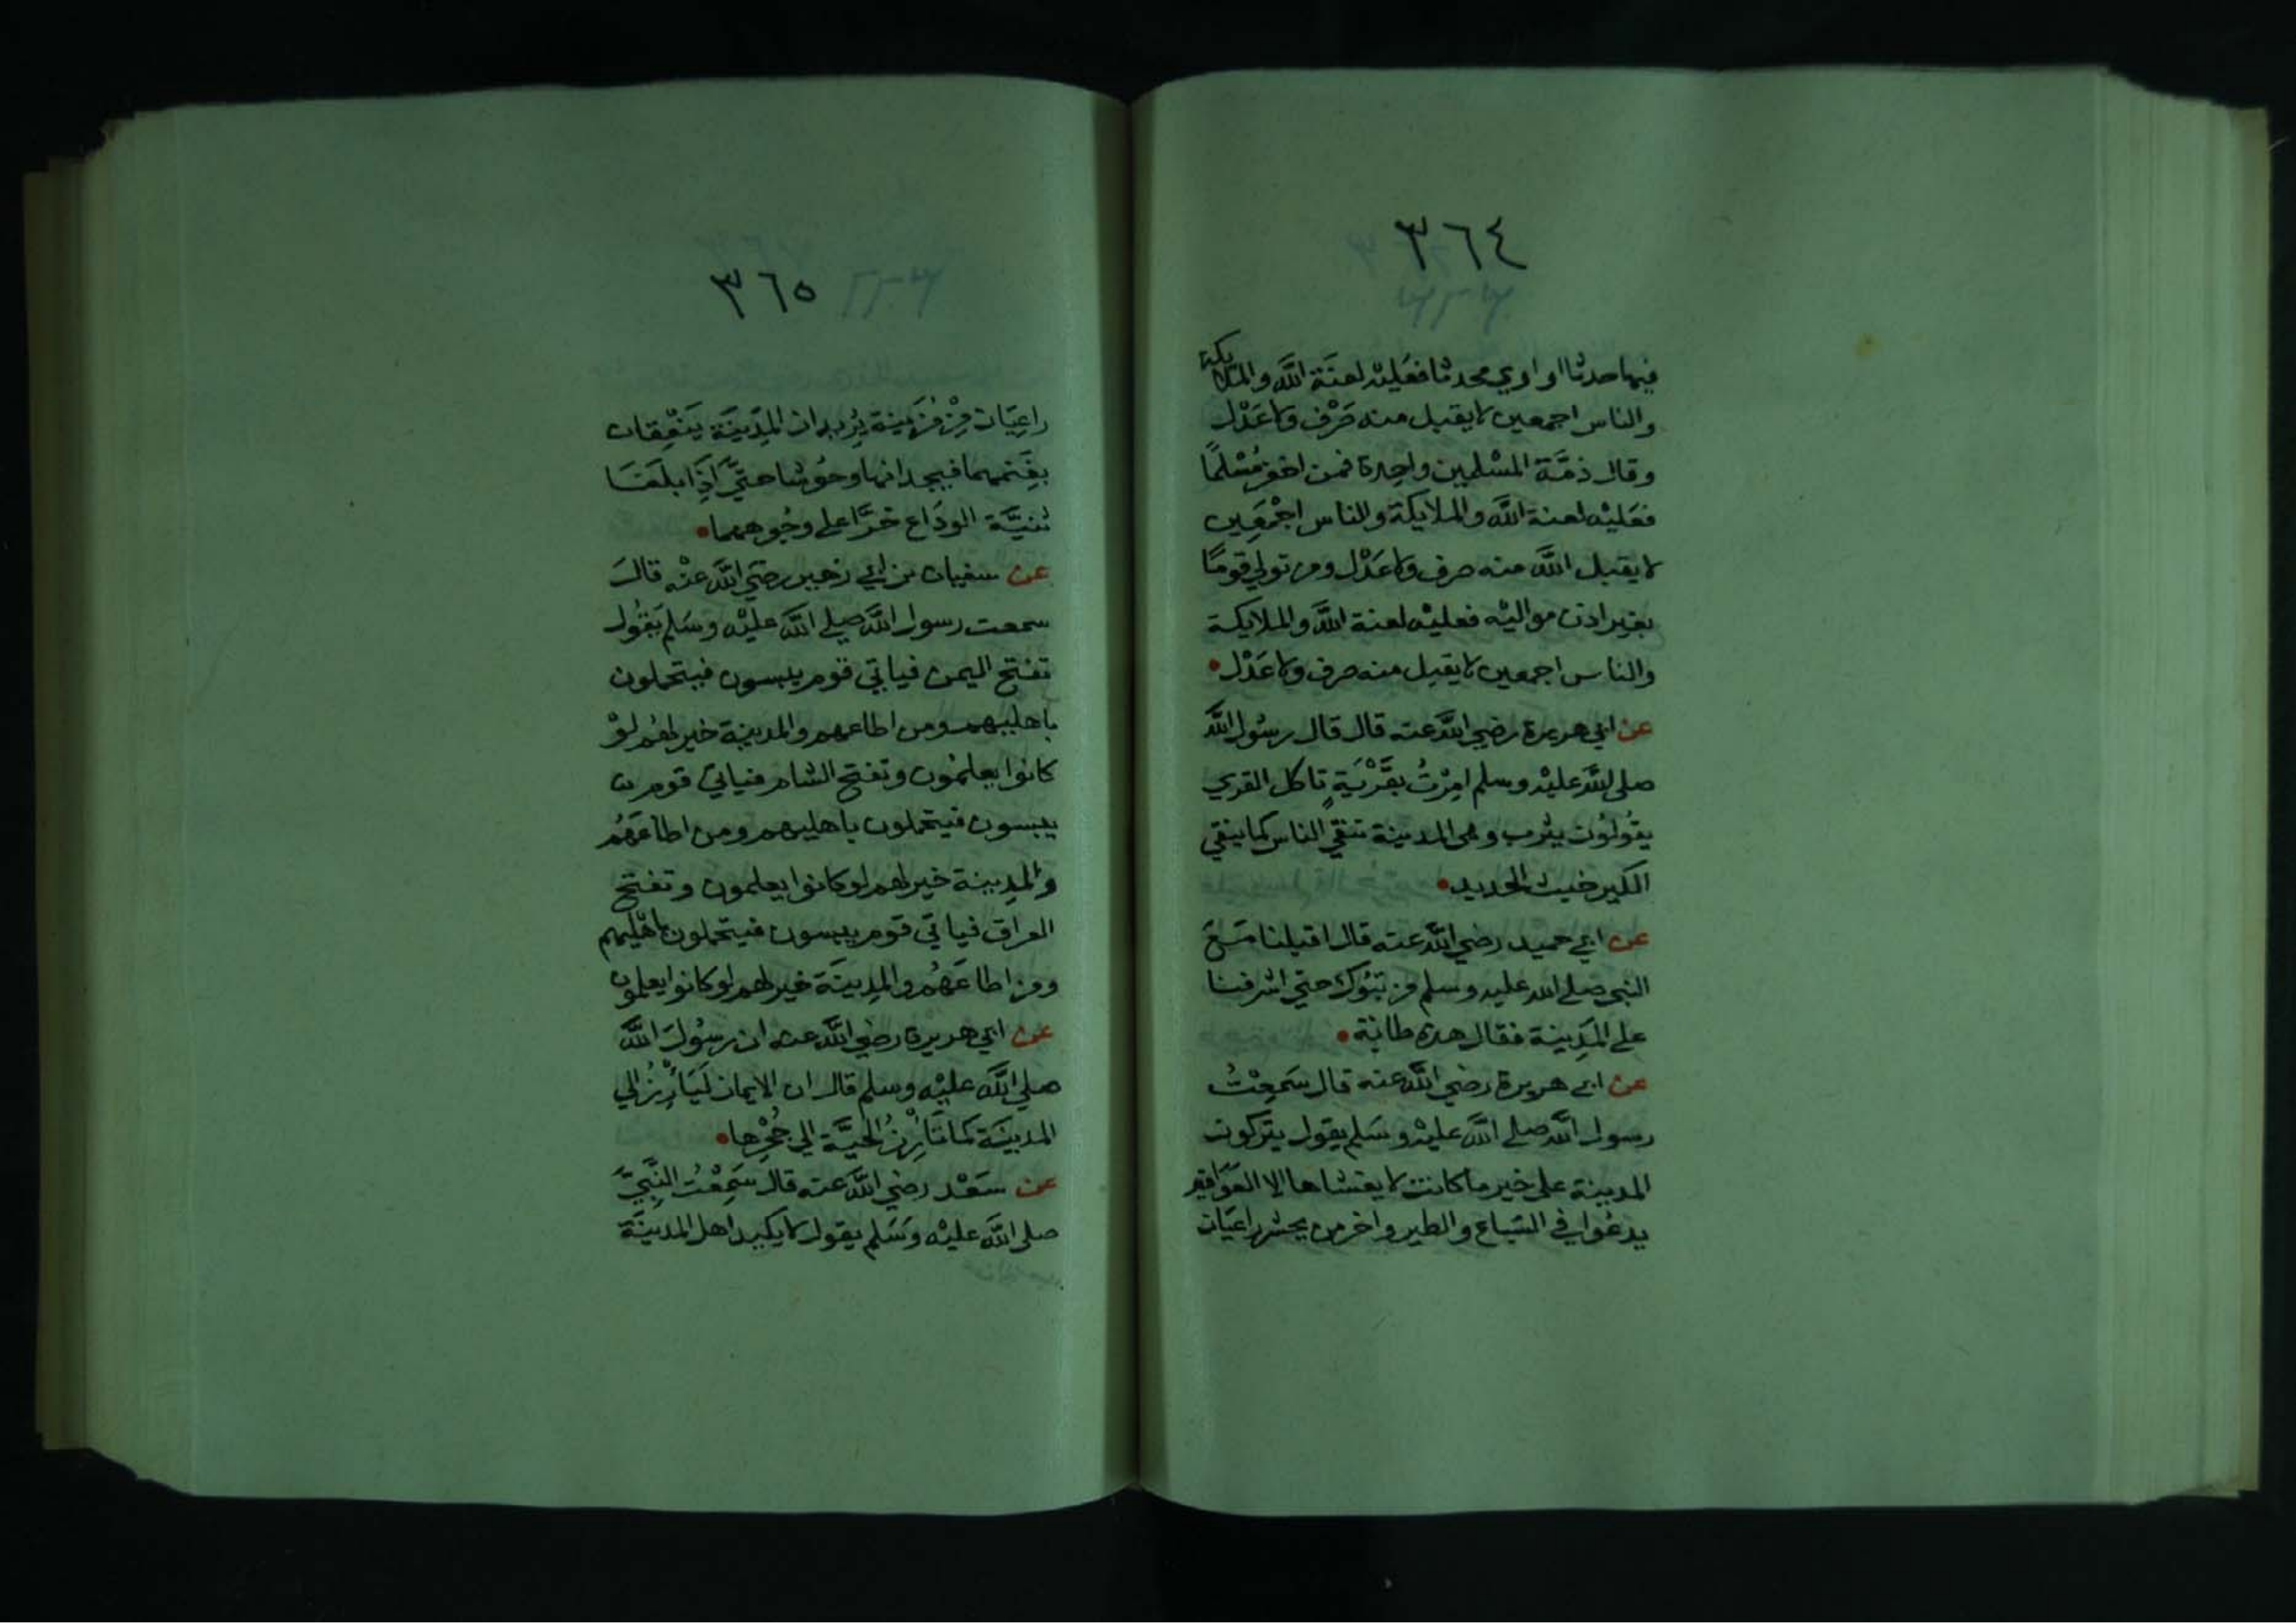 ٣٦٤
فيها حدثا او اوي محدثا فعَليْه لعنَة اللَّه والملايكة
والناس اجمعين لا يقبل منه صَرْف ولا عَدْل
وقال ذمَّة المسْلمين واحِدة فمن اخفر مُسْلمًا
فعَليْه لعنة اللَّه والملايكة والناس اجْمَعِين
لا يقبل اللَّه منه صرف ولا عَدْل ومن تولي قومًا
بغير اذن مواليْه فعليْه لعنة اللَّه والملايكة
والناس اجمعين لا يقبل منه صرف ولا عَدْل
عن ابي هريرة رضي اللَّه عنه قال قال رسُول اللَّه
صلي اللَّه عليْه وسلم امِرْتُ بقَرْيَةٍ تاكل القري
يقُولوُن يثرب وهى المدينة تنقي الناس كما ينقي
الكير خبث الحديد
عن ابي حميد رضي اللَّه عنه قال اقبلنا مَعَ
النبي صلي الله عليه وسلم من تبُوك حتي اشرفنا
علي المَدِينة فقال هذه طابة
عن ابي هريرة رضي اللَّه عنه قال سَمِعْتُ
رسول اللَّه صلي اللَّه عليْه وسَلم يقول يتركون
المدينة علي خير ما كانت لا يغشاها الا العَوَافِي
يدعُوا في السّباع والطير واخر من يحشر راعيَان
٣٦٥
راعِيَان مِنْ مُزَيْنة يُريدان المَدِينَة يَنْعِقان
بغَنمهما فيجدانها وحُوشا حتَّي اذَا بلَغَا
ثنيَّة الودَاع خرَّا علي وجُوههما
عن سفيان بن ابي زهير رضَي اللَّه عنْه قالَ
سمعت رسول اللَّه صلي اللَّه عليْه وسَلم يَقُول
تفتح اليمن فياتي قوم يبسون فيتحملون
باهليهم ومن اطاعهم والمدينة خير لهُم لوْ
كانوا يعلمُون وتفتح الشام فياتي قوم
يبسون فيتحملون باهليهم ومن اطاعَهُم
والمدِينة خير لهم لو كانوا يعلمون وتفتح
العراق فياتي قوم يبسون فيتحملون باهْليهم
ومن اطاعَهُم والمدِينَة خير لهم لو كانوا يعلمون
عن ابي هريرة رضي اللَّه عنه ان رسُولَ اللَّه
صلي اللَّه عليْه وسلم قال ان الايمان لَيَأرِزُ الي
المدينَة كمَا تَأرِزُ الحيَّة الي جُحْرِها
عن سَعْد رضي اللَّه عنه قال سَمِعْتُ النَّبِيَّ
صلي اللَّه عليْه وسَلم يقول لا يكيد اهل المدينَة